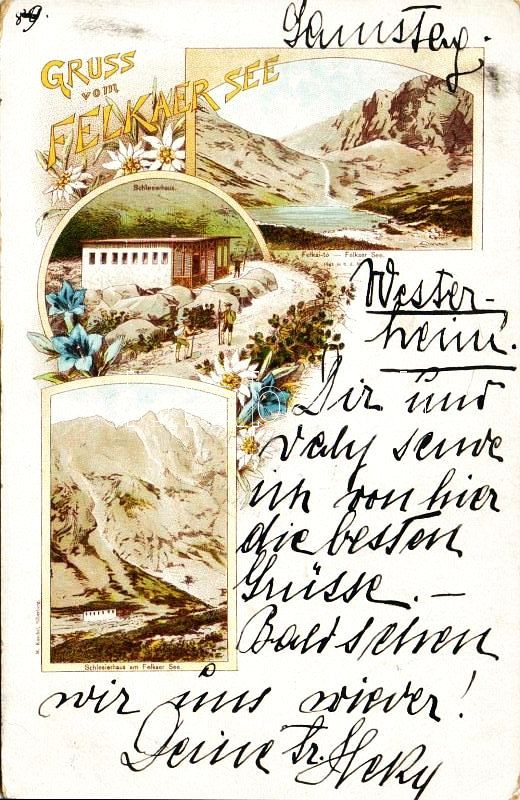 Samstag.
GRUSS
vom
FELKAER SEE
Schlesierhaus.
Felkai-tó — Felkaer See.
Wester-
heim.
Dir und
Valy sende
ich von hier
die besten
Grüsse. —
Bald sehen
wir uns wieder!
Deine
Schlesierhaus am Felkaer See.